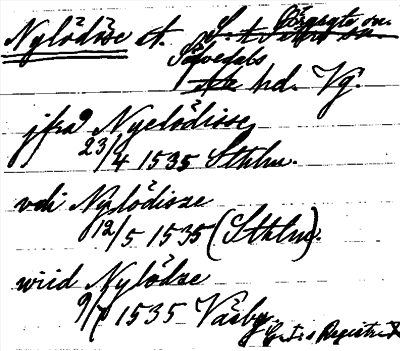 Nylödöse st. Bergsgte sn.
Sävedals
hd. Vg.
jfrå Nyelödisse
23/4 1535 Sthlm.
vdi Nylödisze
12/5 1535 (Sthlm).
wiid Nylödze
9/7 1535 Väsby. G. I:s Registr.